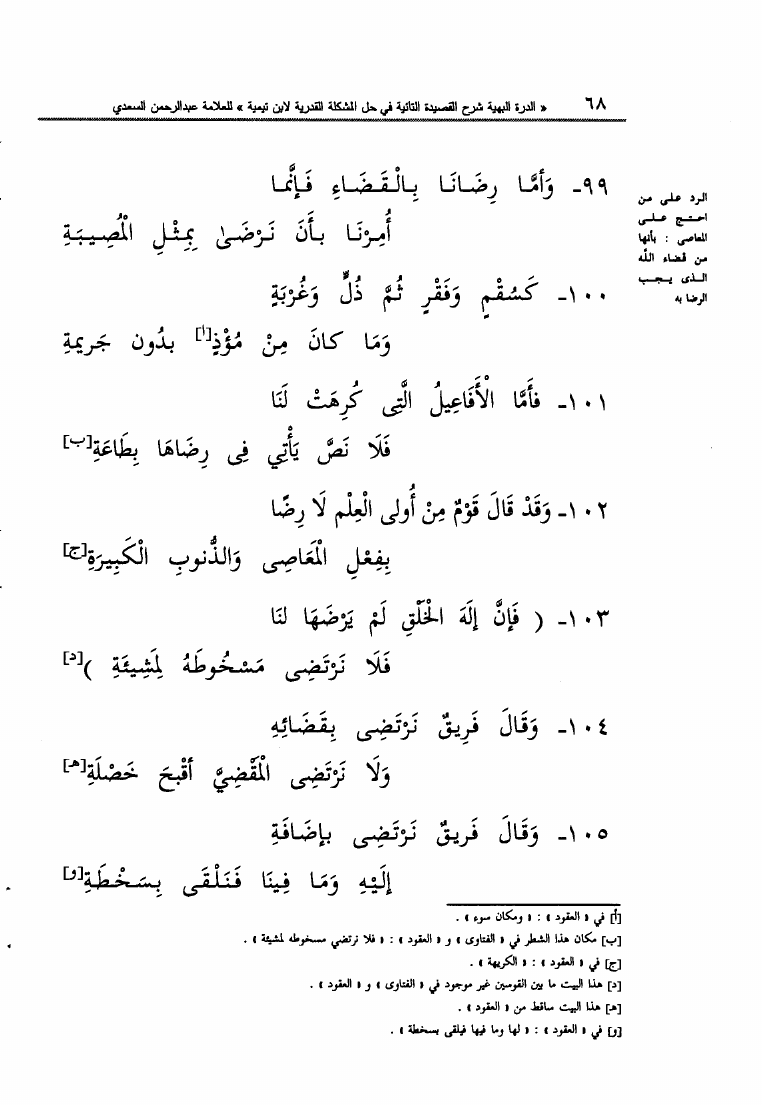 ٦٨ « الدرة البهية شرح القصيدة التائية في حل المشكلة القدرية لابن تيمية » للعلامة عبدالرحمن السعدي
الرد على من
احتج على
المعاصى : بأنها
من قضاء الله
الذى يجب
الرضا به
٩٩- وَأمَّا رِضَانَا بِالْقَضَاءِ فَإِنَّما
أُمِرْنَا بأَنَ نَرْضَىٰ بِمِثْلِ الْمُصِيبَةِ
١٠٠- كَسُقْمٍ وَفَقْرٍ ثُمَّ ذُلٍّ وَغُرْبَةٍ
وَمَا كانَ مِنْ مُؤْذٍ[أ] بدُون جَريمةِ
١٠١- فأَمَّا الْأَفَاعِيلُ الَّتِى كُرِهَتْ لَنَا
فَلَا نَصَّ يَأْتِي فِى رِضَاهَا بِطَاعَةِ[ب]
١٠٢- وَقَدْ قَالَ قَوْمٌ مِنْ أُولى الْعِلْمِ لَا رِضًا
بِفِعْلِ الْمَعَاصِى وَالذُّنوبِ الْكَبِيرَةِ[ج]
١٠٣- ( فَإِنَّ إِلَهَ الْخَلْقِ لَمْ يَرْضَهَا لنَا
فَلَا نَرْتَضِى مَسْخُوطَهُ لِمَشِيئَةِ )[د]
١٠٤- وَقَالَ فَرِيقٌ نَرْتَضِى بِقَضَائِهِ
وَلَا نَرْتَضِى الْمَقْضِيَّ أقْبحَ خَصْلَةِ[هـ]
١٠٥- وَقَالَ فَريقٌ نَرْتَضِى بإضَافَةِ
إِلَيْهِ وَمَا فِينَا فَنَلْقَى بِسَخْطَةِ[و]
[أ] في « العقود » : « ومكان سوء » .
[ب] مكان هذا الشطر في « الفتاوى » و « العقود » : « فلا نرتضي مسخوطه لمشيئة » .
[ج] في « العقود » : « الكريهة » .
[د] هذا البيت ما بين القوسين غير موجود في « الفتاوى » و « العقود » .
[هـ] هذا البيت ساقط من « العقود » .
[و] في « العقود » : « لها وما فيها فيلقى بسخطة » .